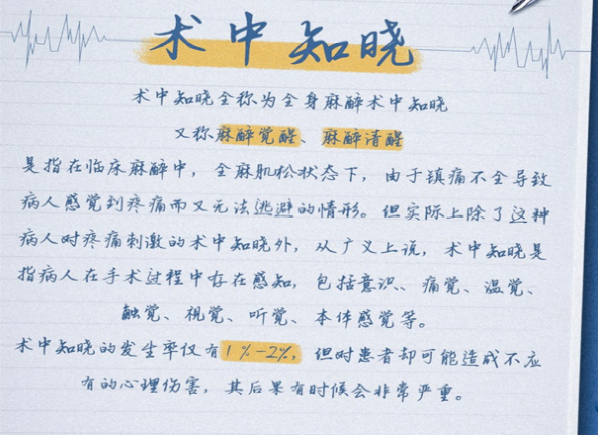 术中知晓
术中知晓全称为全身麻醉术中知晓
又称麻醉觉醒、麻醉清醒
是指在临床麻醉中，全麻肌松状态下，由于镇痛不全导致
病人感觉到疼痛而又无法逃避的情形。但实际上除了这种
病人对疼痛刺激的术中知晓外，从广义上说，术中知晓是
指病人在手术过程中存在感知，包括意识、痛觉、温觉、
触觉、视觉、听觉、本体感觉等。
术中知晓的发生率仅有1%-2%，但对患者却可能造成不应
有的心理伤害，其后果有时候会非常严重。